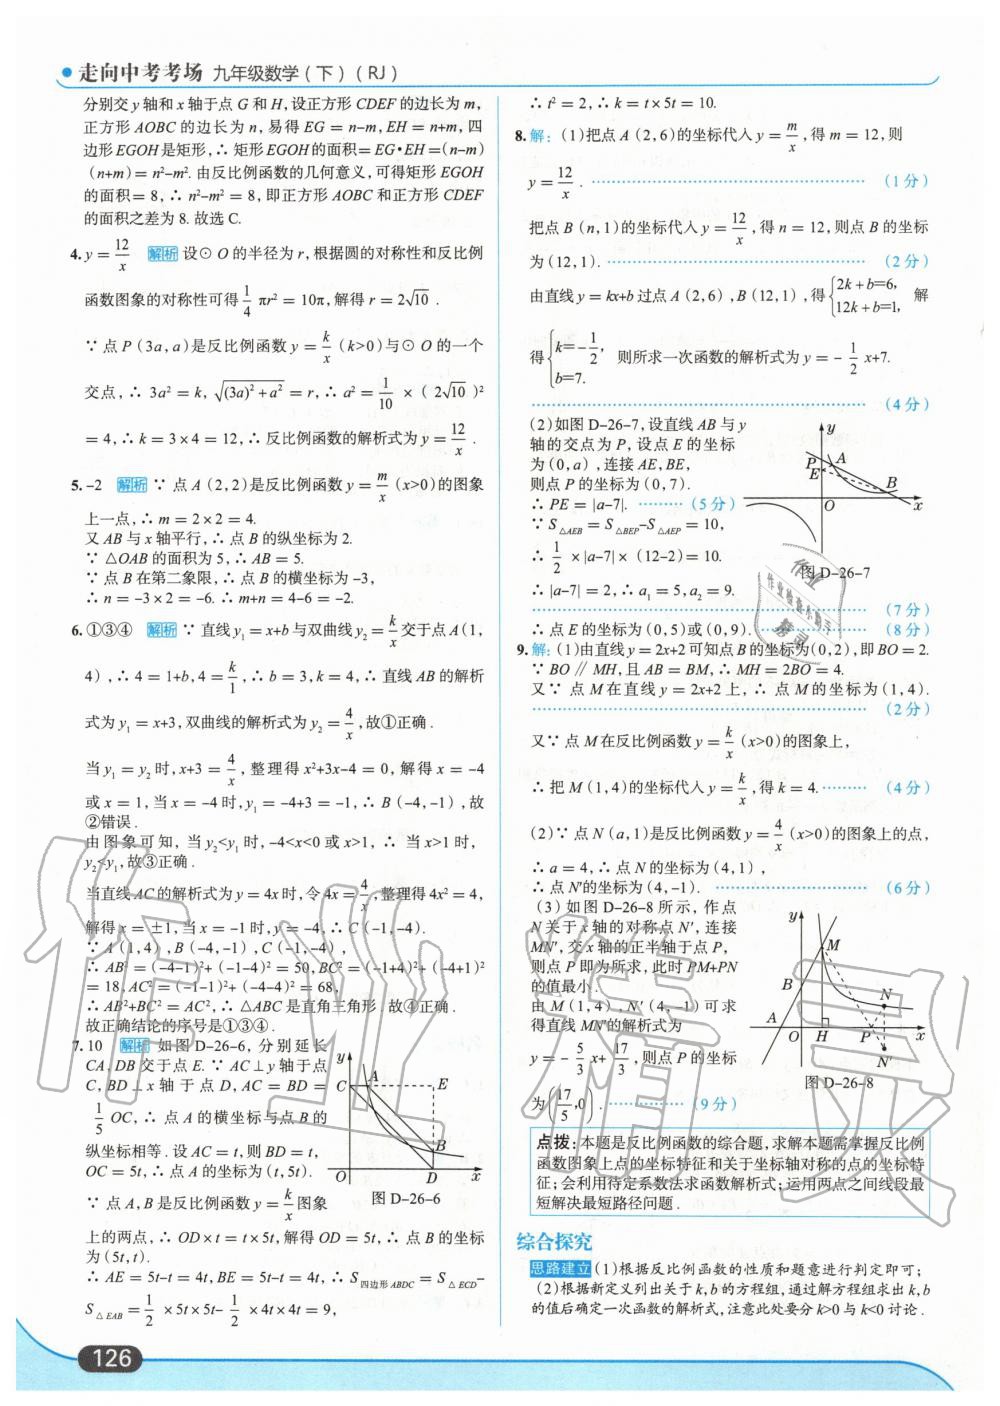 走向中考考场 九年级数学(下)(RJ)
分别交 y 轴和 x 轴于点 G 和 H,设正方形 CDEF 的边长为 m,
正方形 AOBC 的边长为 n,易得 EG = n-m,EH = n+m,四
边形EGOH是矩形,∴ 矩形EGOH的面积=EG·EH=(n-m)
(n+m)= n²-m². 由反比例函数的几何意义,可得矩形 EGOH
的面积= 8,∴ n²-m² = 8,即正方形 AOBC 和正方形 CDEF
的面积之差为 8. 故选 C.
4. y = 12/x 解析 设⊙ O 的半径为 r,根据圆的对称性和反比例
函数图象的对称性可得 1/4 πr² = 10π,解得 r = 2√10 .
∵ 点 P(3a,a)是反比例函数 y = k/x (k>0)与⊙ O 的一个
交点,∴ 3a² = k,√((3a)²+a²) = r,∴ a² = 1/10 ×(2√10)²
= 4,∴ k = 3×4 = 12,∴ 反比例函数的解析式为 y = 12/x .
5. -2 解析 ∵ 点 A(2,2)是反比例函数 y = m/x (x>0)的图象
上一点,∴ m = 2×2 = 4.
又 AB 与 x 轴平行,∴ 点 B 的纵坐标为 2.
∵ △OAB 的面积为 5,∴ AB = 5.
∵ 点 B 在第二象限,∴ 点 B 的横坐标为 -3,
∴ n = -3×2 = -6. ∴ m+n = 4-6 = -2.
6. ①③④ 解析 ∵ 直线 y₁ = x+b 与双曲线 y₂ = k/x 交于点 A(1,
4),∴ 4 = 1+b,4 = k/1,∴ b = 3,k = 4,∴ 直线 AB 的解析
式为 y₁ = x+3,双曲线的解析式为 y₂ = 4/x,故①正确.
当 y₁ = y₂ 时,x+3 = 4/x,整理得 x²+3x-4 = 0,解得 x = -4
或 x = 1,当 x = -4 时,y₁ = -4+3 = -1,∴ B(-4,-1),故
②错误.
由图象可知,当 y₂<y₁ 时,-4<x<0 或 x>1,∴ 当 x>1 时,
y₂<y₁,故③正确.
当直线 AC 的解析式为 y = 4x 时,令 4x = 4/x,整理得 4x² = 4,
解得 x = ±1,当 x = -1 时,y = -4,∴ C(-1,-4).
∵ A(1,4),B(-4,-1),C(-1,-4),
∴ AB² = (-4-1)²+(-1-4)² = 50,BC² = (-1+4)²+(-4+1)²
= 18,AC² = (-1-1)²+(-4-4)² = 68,
∴ AB²+BC² = AC²,∴ △ABC 是直角三角形. 故④正确.
故正确结论的序号是①③④.
7. 10 解析 如图 D-26-6,分别延长
CA,DB 交于点 E. ∵ AC⊥y 轴于点
C,BD⊥x 轴于点 D,AC = BD =
1/5 OC,∴ 点 A 的横坐标与点 B 的
纵坐标相等. 设 AC = t,则 BD = t,
OC = 5t,∴ 点 A 的坐标为(t,5t).
∵ 点 A,B 是反比例函数 y = k/x 图象
上的两点,∴ OD×t = t×5t,解得 OD = 5t,∴ 点 B 的坐标
为(5t,t).
∴ AE = 5t-t = 4t,BE = 5t-t = 4t,∴ S四边形ABDC = S△ECD-
S△EAB = 1/2 ×5t×5t- 1/2 ×4t×4t = 9,
y
C
A
E
B
O
D
x
图 D-26-6
∴ t² = 2,∴ k = t×5t = 10.
8. 解:(1)把点 A(2,6)的坐标代入 y = m/x,得 m = 12,则
y = 12/x. (1分)
把点 B(n,1)的坐标代入 y = 12/x,得 n = 12,则点 B 的坐标
为(12,1). (2分)
由直线 y = kx+b 过点 A(2,6),B(12,1),得 {2k+b=6, 12k+b=1, 解
得 {k=-1/2, b=7. 则所求一次函数的解析式为 y = - 1/2 x+7.
(4分)
(2)如图 D-26-7,设直线 AB 与 y
轴的交点为 P,设点 E 的坐标
为(0,a),连接 AE,BE,
则点 P 的坐标为(0,7).
∴ PE = |a-7|. (5分)
∵ S△AEB = S△BEP-S△AEP = 10,
∴ 1/2 ×|a-7|×(12-2)= 10.
∴ |a-7| = 2,∴ a₁ = 5,a₂ = 9.
(7分)
∴ 点 E 的坐标为(0,5)或(0,9). (8分)
y
P
A
E
B
O
x
图 D-26-7
9. 解:(1)由直线 y = 2x+2 可知点 B 的坐标为(0,2),即 BO = 2.
∵ BO∥MH,且 AB = BM,∴ MH = 2BO = 4.
又∵ 点 M 在直线 y = 2x+2 上,∴ 点 M 的坐标为(1,4).
(2分)
又∵ 点 M 在反比例函数 y = k/x (x>0)的图象上,
∴ 把 M(1,4)的坐标代入 y = k/x,得 k = 4. (4分)
(2)∵ 点 N(a,1)是反比例函数 y = 4/x (x>0)的图象上的点,
∴ a = 4,∴ 点 N 的坐标为(4,1),
∴ 点 N′的坐标为(4,-1). (6分)
(3)如图 D-26-8 所示,作点
N 关于 x 轴的对称点 N′,连接
MN′,交 x 轴的正半轴于点 P,
则点 P 即为所求,此时 PM+PN
的值最小.
由 M(1,4),N′(4,-1)可求
得直线 MN′的解析式为
y = - 5/3 x+ 17/3,则点 P 的坐标
为(17/5,0). (9分)
y
M
B
N
A
O
H
P
x
N′
图 D-26-8
点拨:本题是反比例函数的综合题,求解本题需掌握反比例
函数图象上点的坐标特征和关于坐标轴对称的点的坐标特
征;会利用待定系数法求函数解析式;运用两点之间线段最
短解决最短路径问题.
综合探究
思路建立 (1)根据反比例函数的性质和题意进行判定即可;
(2)根据新定义列出关于 k,b 的方程组,通过解方程组求出 k,b
的值后确定一次函数的解析式,注意此处要分 k>0 与 k<0 讨论.
126
作业精灵